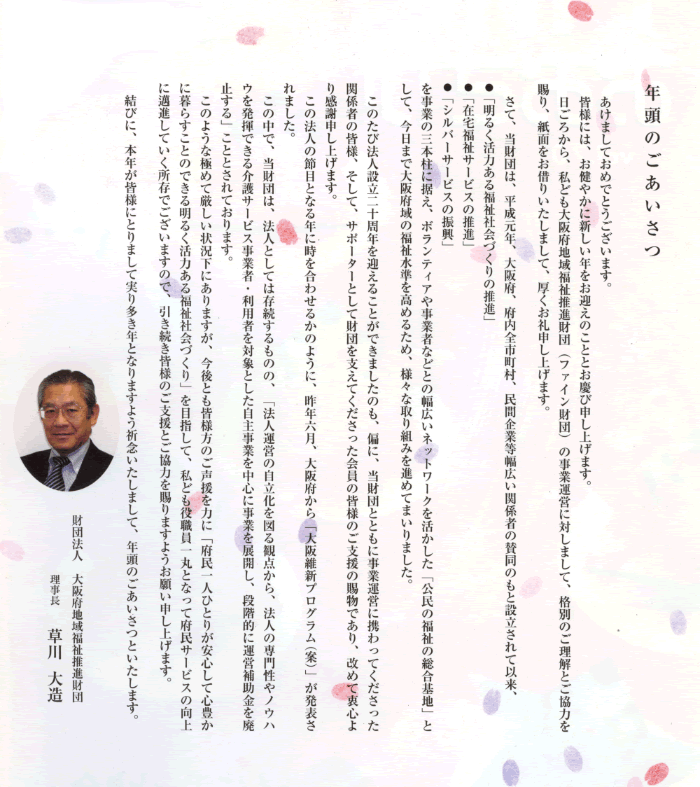 年頭のごあいさつ
あけましておめでとうございます。
皆様には、お健やかに新しい年をお迎えのこととお慶び申し上げます。
日ごろから、私ども大阪府地域福祉推進財団（ファイン財団）の事業運営に対しまして、格別のご理解とご協力を
賜り、紙面をお借りいたしまして、厚くお礼申し上げます。
さて、当財団は、平成元年、大阪府、府内全市町村、民間企業等幅広い関係者の賛同のもと設立されて以来、
●「明るく活力ある福祉社会づくりの推進」
●「在宅福祉サービスの推進」
●「シルバーサービスの振興」
を事業の三本柱に据え、ボランティアや事業者などとの幅広いネットワークを活かした「公民の福祉の総合基地」と
して、今日まで大阪府域の福祉水準を高めるため、様々な取り組みを進めてまいりました。
このたび法人設立二十周年を迎えることができましたのも、偏に、当財団とともに事業運営に携わってくださった
関係者の皆様、そして、サポーターとして財団を支えてくださった会員の皆様のご支援の賜物であり、改めて衷心よ
り感謝申し上げます。
この法人の節目となる年に時を合わせるかのように、昨年六月、大阪府から「大阪維新プログラム（案）」が発表さ
れました。
この中で、当財団は、法人としては存続するものの、「法人運営の自立化を図る観点から、法人の専門性やノウハ
ウを発揮できる介護サービス事業者・利用者を対象とした自主事業を中心に事業を展開し、段階的に運営補助金を廃
止する」こととされております。
このような極めて厳しい状況下にありますが、今後とも皆様方のご声援を力に「府民一人ひとりが安心して心豊か
に暮らすことのできる明るく活力ある福祉社会づくり」を目指して、私ども役職員一丸となって府民サービスの向上
に邁進していく所存でございますので、引き続き皆様のご支援とご協力を賜りますようお願い申し上げます。
結びに、本年が皆様にとりまして実り多き年となりますよう祈念いたしまして、年頭のごあいさつといたします。
財団法人　大阪府地域福祉推進財団
理事長　草川　大造